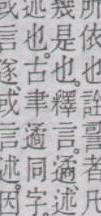 所依也詮者凡
幾是也。釋言。遹述
述也。古聿遹同字。
或言遂。或言述。因